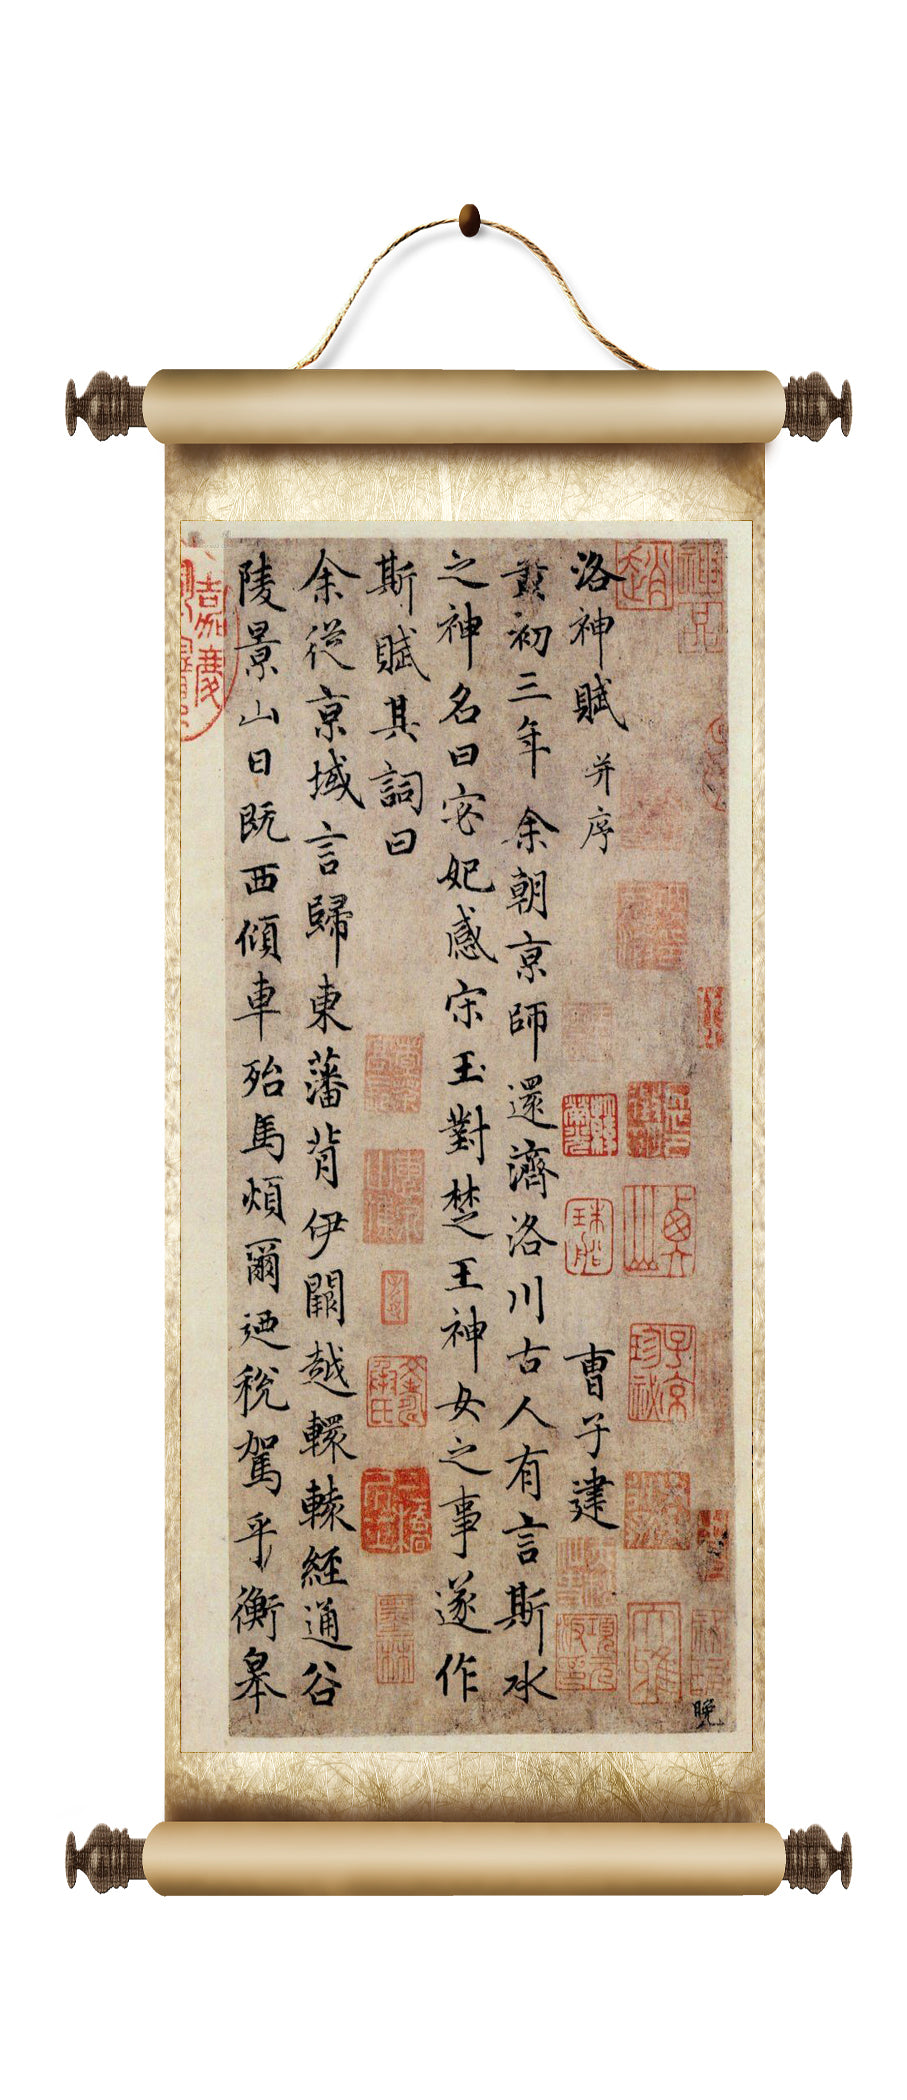 洛神賦 并序 曹子建
黃初三年余朝京師還濟洛川古人有言斯水
之神名曰宓妃感宋玉對楚王神女之事遂作
斯賦其詞曰
余從京域言歸東藩背伊闕越轘轅經通谷
陵景山日既西傾車殆馬煩爾迺稅駕乎衡皋
晚
嘉慶